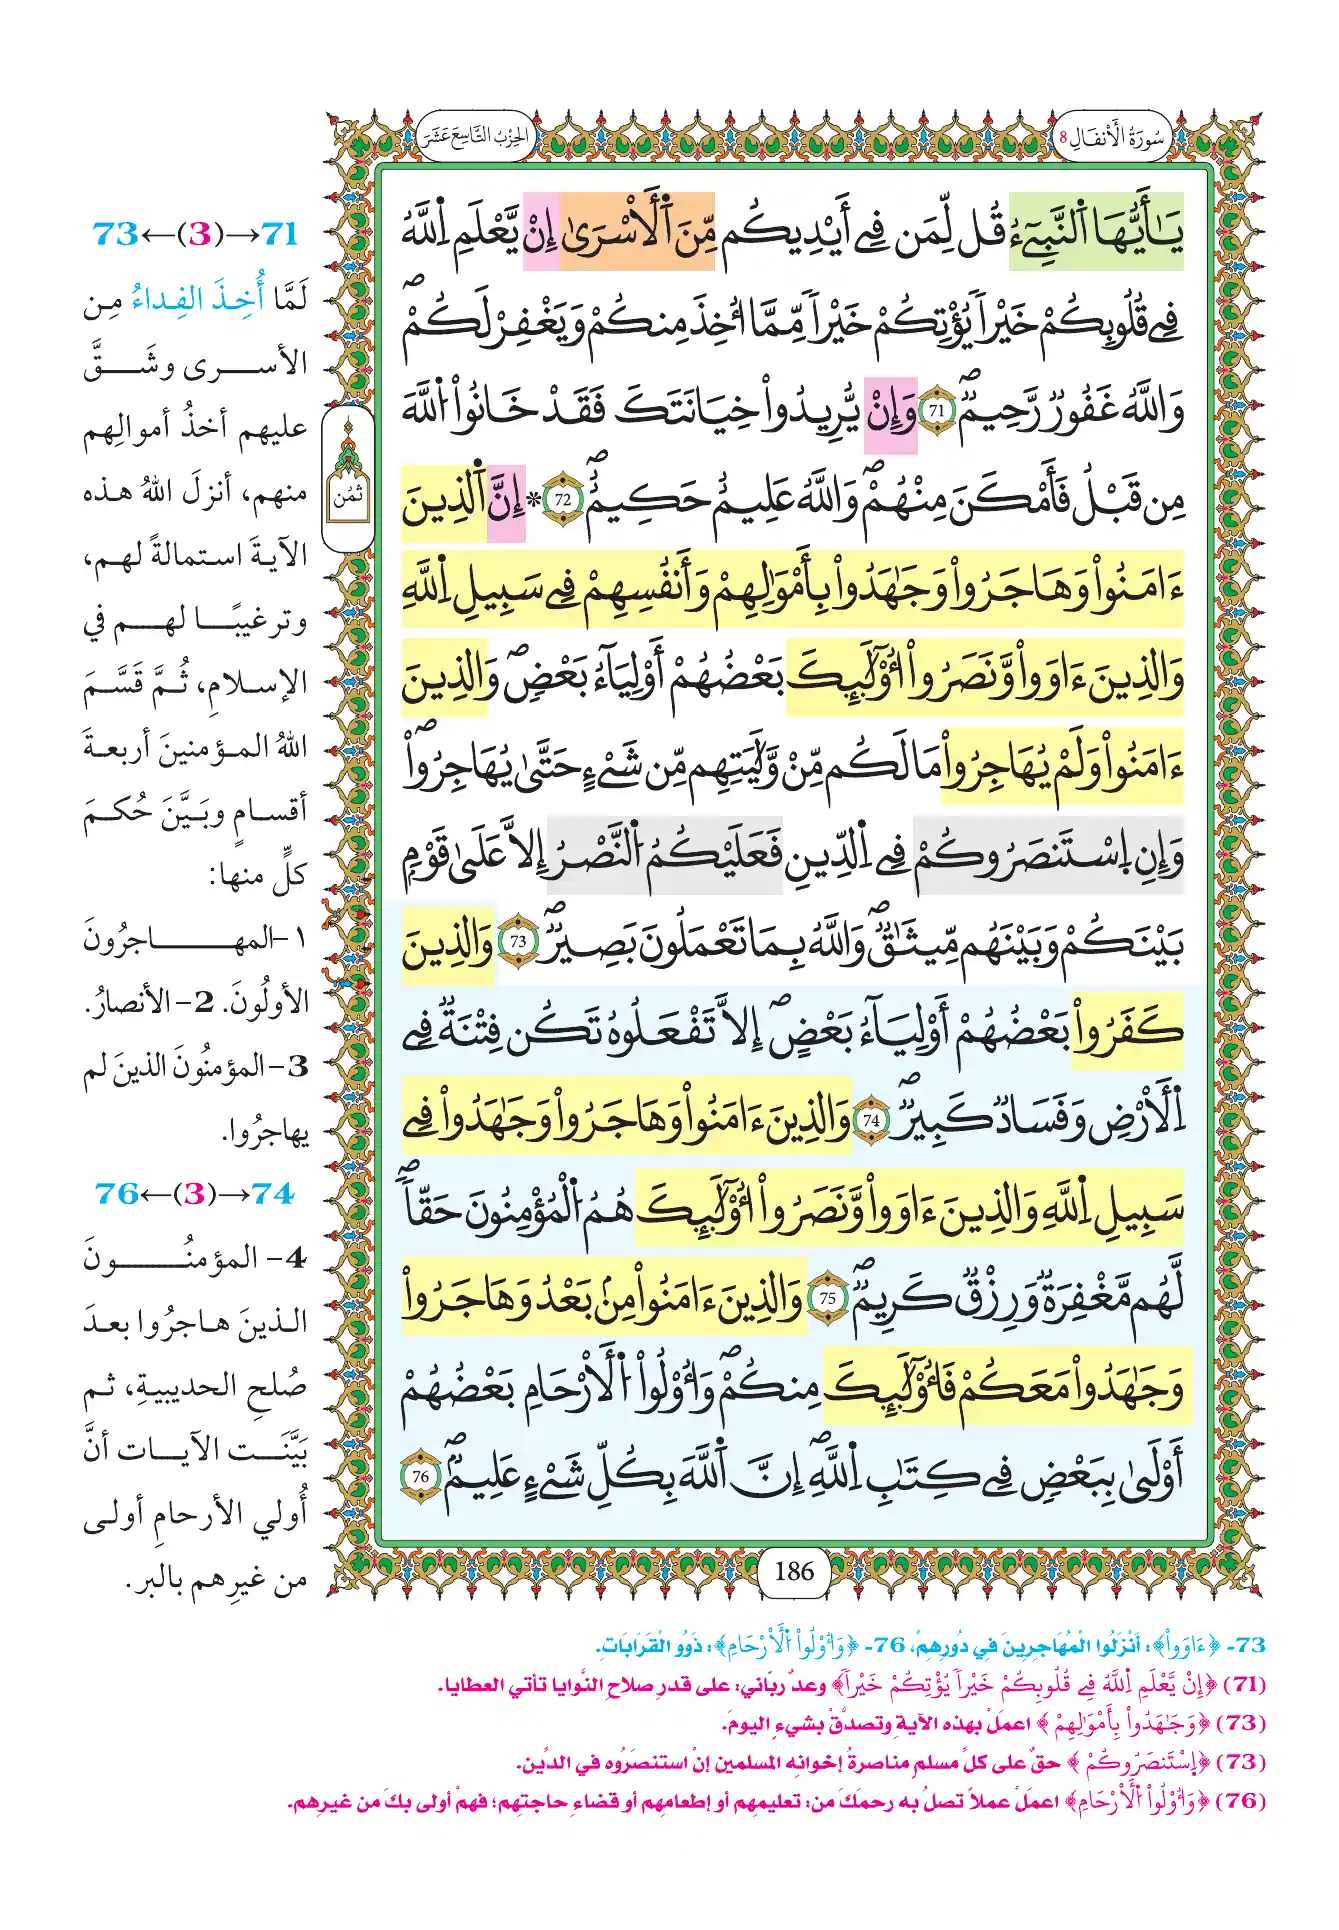 سُورَةُ الأَنفَالِ 8
الحِزْبُ التَّاسِعَ عَشَرَ
يَٰٓأَيُّهَا اَ۬لنَّبِيٓءُ قُل لِّمَن فِےٓ أَيْدِيكُم مِّنَ اَ۬لْأَسْر۪يٰٓ إِنْ يَّعْلَمِ اِ۬للَّهُ
فِے قُلُوبِكُمْ خَيْراٗ يُؤْتِكُمْ خَيْراٗ مِّمَّآ أُخِذَ مِنكُمْ وَيَغْفِرْ لَكُمْۖ
وَاللَّهُ غَفُورٞ رَّحِيمٞۖ 71 وَإِنْ يُّرِيدُواْ خِيَانَتَكَ فَقَدْ خَانُواْ اُ۬للَّهَ
مِن قَبْلُ فَأَمْكَنَ مِنْهُمْۖ وَاللَّهُ عَلِيمٌ حَكِيمٌۖ 72 * إِنَّ اَ۬لذِينَ
ءَامَنُواْ وَهَاجَرُواْ وَجَٰهَدُواْ بِأَمْوَٰلِهِمْ وَأَنفُسِهِمْ فِے سَبِيلِ اِ۬للَّهِ
وَالذِينَ ءَاوَواْ وَّنَصَرُوٓاْ أُوْلَٰٓئِكَ بَعْضُهُمْ أَوْلِيَآءُ بَعْضٖۖ وَالذِينَ
ءَامَنُواْ وَلَمْ يُهَاجِرُواْ مَا لَكُم مِّنْ وَّلَٰيَتِهِم مِّن شَےْءٍ حَتَّىٰ يُهَاجِرُواْۖ
وَإِنِ اِ۪سْتَنصَرُوكُمْ فِے اِ۬لدِّينِ فَعَلَيْكُمُ اُ۬لنَّصْرُ إِلَّا عَلَىٰ قَوْمِۢ
بَيْنَكُمْ وَبَيْنَهُم مِّيثَٰقٞۖ وَاللَّهُ بِمَا تَعْمَلُونَ بَصِيرٞۖ 73 وَالذِينَ
كَفَرُواْ بَعْضُهُمْ أَوْلِيَآءُ بَعْضٍۖ إِلَّا تَفْعَلُوهُ تَكُن فِتْنَةٞ فِے
اِ۬لْأَرْضِ وَفَسَادٞ كَبِيرٞۖ 74 وَالذِينَ ءَامَنُواْ وَهَاجَرُواْ وَجَٰهَدُواْ فِے
سَبِيلِ اِ۬للَّهِ وَالذِينَ ءَاوَواْ وَّنَصَرُوٓاْ أُوْلَٰٓئِكَ هُمُ اُ۬لْمُؤْمِنُونَ حَقّاٗۖ
لَّهُم مَّغْفِرَةٞ وَرِزْقٞ كَرِيمٞۖ 75 وَالذِينَ ءَامَنُواْ مِنۢ بَعْدُ وَهَاجَرُواْ
وَجَٰهَدُواْ مَعَكُمْ فَأُوْلَٰٓئِكَ مِنكُمْۖ وَأُوْلُواْ اُ۬لْأَرْحَامِ بَعْضُهُمْ
أَوْلَىٰ بِبَعْضٖ فِے كِتَٰبِ اِ۬للَّهِۖ إِنَّ اَ۬للَّهَ بِكُلِّ شَےْءٍ عَلِيمٞۖ 76
186
ثُمُن
71→(3)←73
لَمَّا أُخِذَ الفِداءُ مِن
الأسرى وشَقَّ
عليهم أخذُ أموالِهم
منهم، أنزلَ اللهُ هذه
الآيةَ استمالةً لهم،
وترغيبًا لهم في
الإسلامِ، ثُمَّ قَسَّمَ
اللهُ المؤمنينَ أربعةَ
أقسامٍ وبَيَّنَ حُكمَ
كلٍّ منها:
١-المهاجرُونَ
الأولُونَ. 2-الأنصارُ.
3-المؤمنُونَ الذينَ لم
يهاجرُوا.
74→(3)←76
4- المؤمنُونَ
الذينَ هاجرُوا بعدَ
صُلحِ الحديبيةِ، ثم
بَيَّنَت الآيات أنَّ
أُولي الأرحامِ أولى
من غيرِهم بالبر.
73- ﴿ءَاوَواْ﴾: أَنْزَلُوا الْمُهَاجِرِينَ فِي دُورِهِمْ، 76- ﴿وَأُوْلُواْ اُ۬لْأَرْحَامِ﴾: ذَوُو الْقَرَابَاتِ.
(71) ﴿إِنْ يَّعْلَمِ اِ۬للَّهُ فِے قُلُوبِكُمْ خَيْراٗ يُؤْتِكُمْ خَيْراٗ﴾ وعدٌ ربّاني: على قدرِ صلاحِ النَّوايا تأتي العطايا.
(73) ﴿وَجَٰهَدُواْ بِأَمْوَٰلِهِمْ﴾ اعملْ بهذه الآيةِ وتصدَّقْ بشيءٍ اليومَ.
(73) ﴿اِ۪سْتَنصَرُوكُمْ﴾ حقٌ على كلِّ مسلمٍ مناصرةُ إخوانِه المسلمين إنْ استنصَرُوه في الدِّين.
(76) ﴿وَأُوْلُواْ اُ۬لْأَرْحَامِ﴾ اعملْ عملاً تصلُ به رحمكَ من: تعليمِهم أو إطعامِهم أو قضاءِ حاجتِهم؛ فهمْ أولى بكَ من غيرِهم.